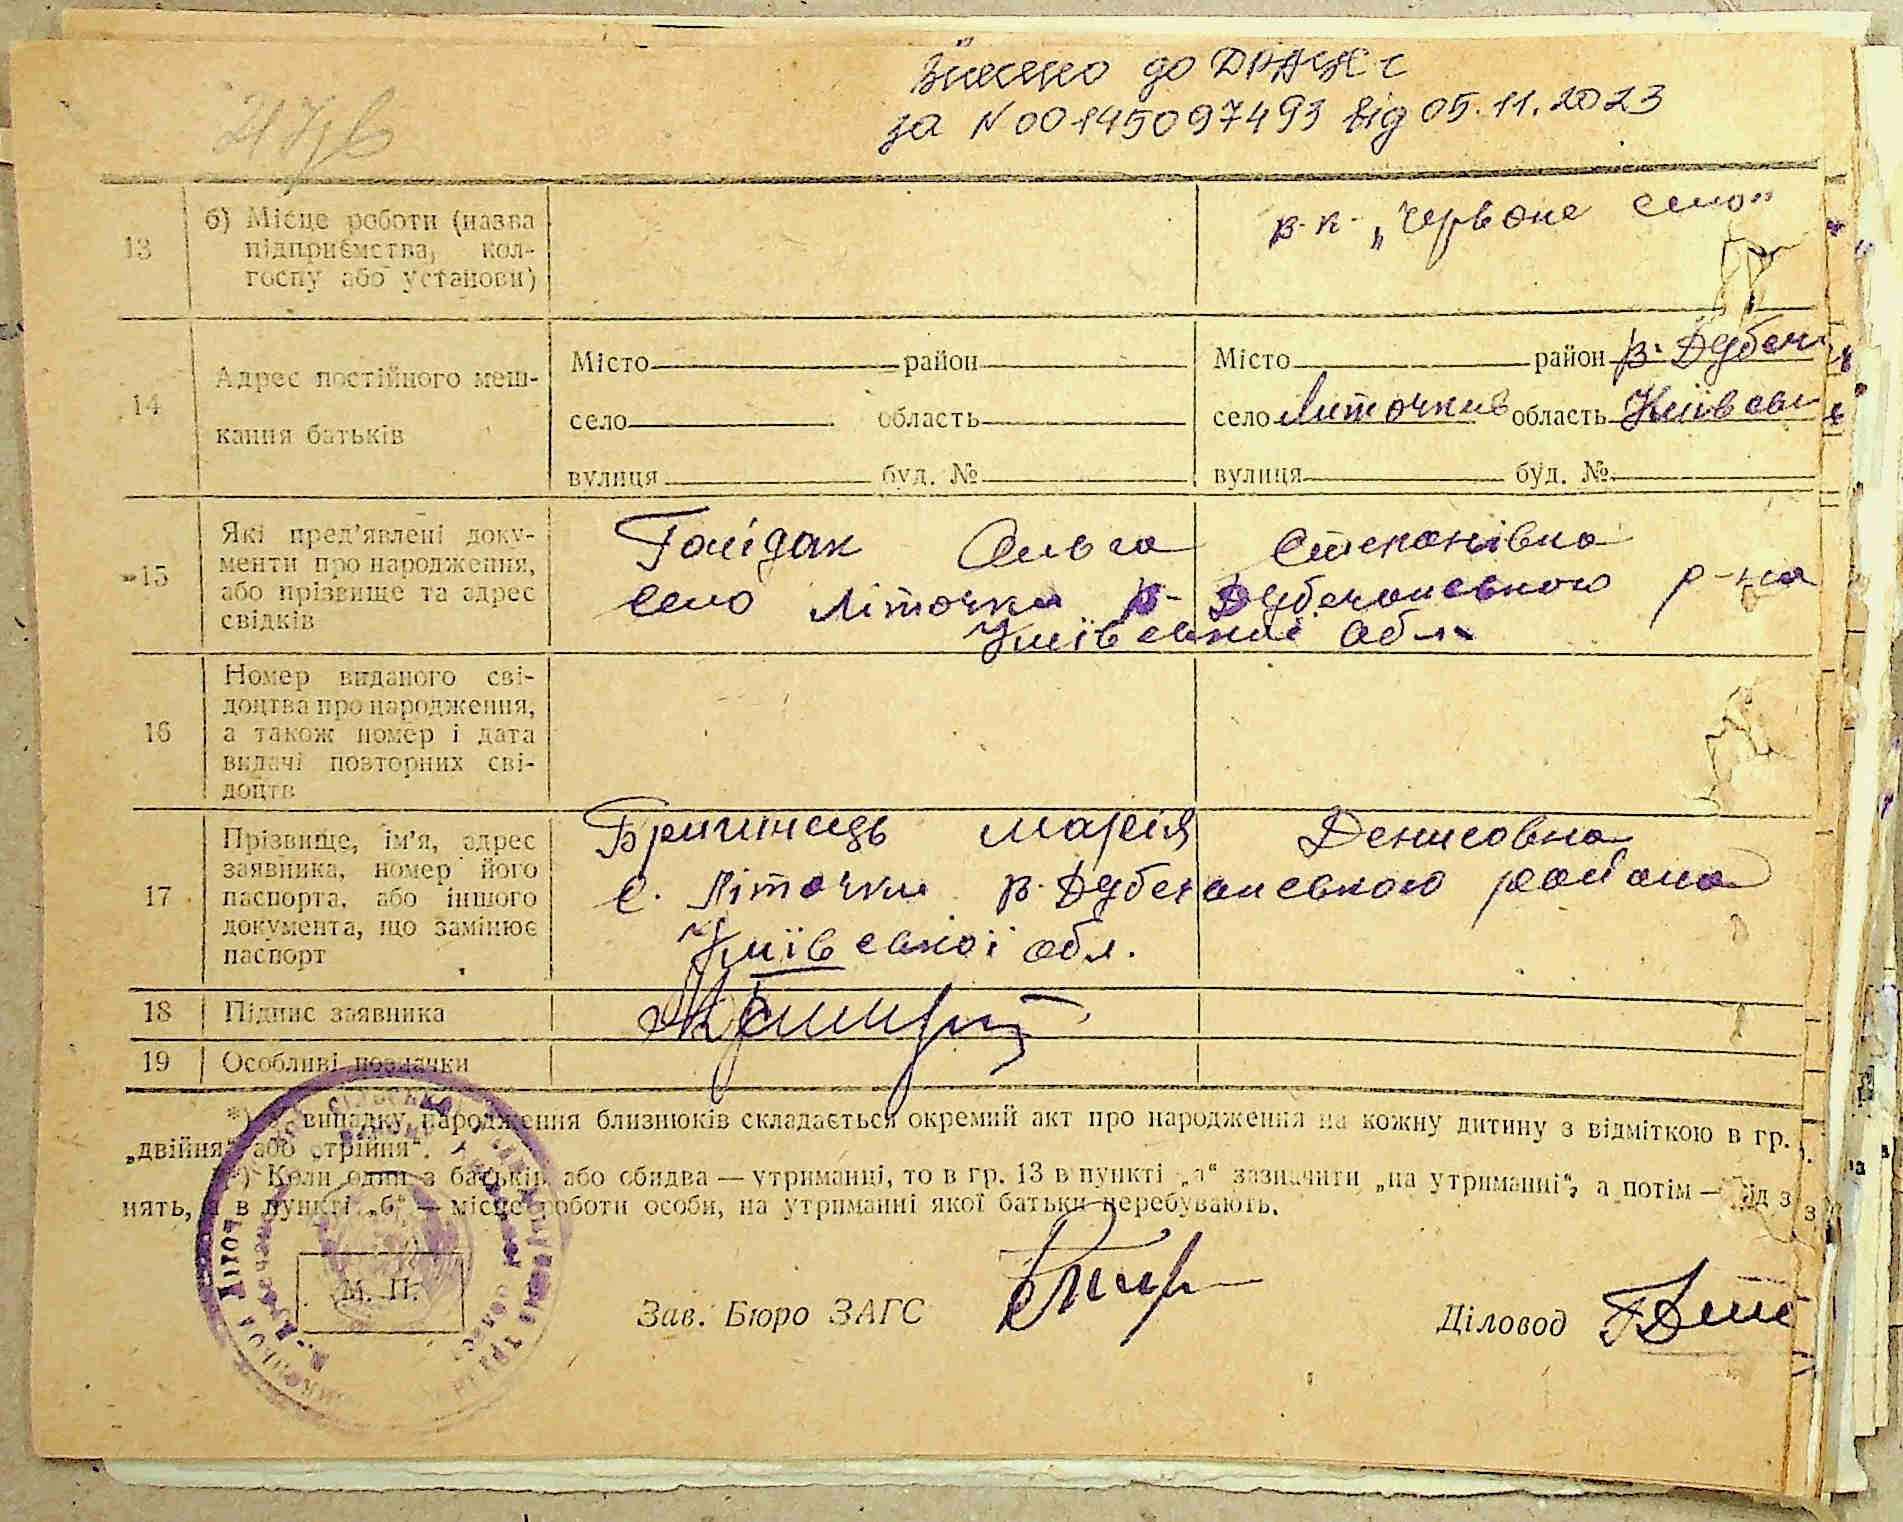 Внесено до ДРАЦСГ
за N 00145097493 від 05.11.2023
13
б) Місце роботи (назва
підприємства, кол-
госпу або установи)
к-п. „Червоне село"
14
Адрес постійного меш-
кання батьків
Місто район
село область
вулиця буд. №
Місто район В. Дубеч
село Літочків область Київськ
вулиця буд. №
15
Які пред'явлені доку-
менти про народження,
або прізвище та адрес
свідків
Гайдак Ольга Степанівна
село Літочки В-Дубечанського р-на
Київської обл.
16
Номер виданого сві-
доцтва про народження,
а також номер і дата
видачі повторних сві-
доцтв
17
Прізвище, ім'я, адрес
заявника, номер його
паспорта, або іншого
документа, що замінює
паспорт
Бригинець Марія Денисовна
с. Літочки В. Дубечанського района
Київської обл.
18
Підпис заявника
19
Особливі позначки
*) У випадку народження близнюків складається окремий акт про народження на кожну дитину з відміткою в гр.
„двійня" або „трійня".
*) Коли один з батьків або обидва — утриманці, то в гр. 13 в пункті „а" зазначити „на утриманні", а потім —
нять, а в пункті „б" — місце роботи особи, на утриманні якої батьки перебувають.
М. П.
Зав. Бюро ЗАГС
Діловод